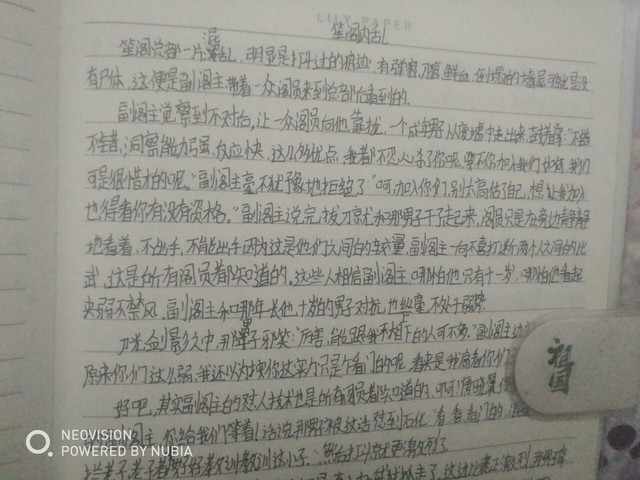 LILY PAPER
笙阁内乱
笙阁总部一片混乱,明显是打斗过的痕迹,有弹壳,刀痕,鲜血,倒塌的墙屋 可就是没
有尸体,这便是副阁主带着一众阁员来到总部后看到的。
副阁主觉察到不对台,让一众阁员向他靠拢,一个成年男子从废墟中走出来,鼓着掌:"不错
不错,洞察能力强,反应快,这么多优点,我都不忍心杀了你呢,要不你加入我们 我们
可是很惜才的呢。"副阁主毫不犹豫地拒绝了:"呵,加入你们,别太高估了自己,想让我加入
也得看你有没有资格。"副阁主说完,拔刀就和那男子干了起来,阁员只是在旁边静静
地看着,不出手,不能出手因为这是他们之间的较量,副阁主一向不喜打断两个人之间的比
武,这是所有阁员都知道的。这些人相信副阁主,哪怕他只有十一岁,哪怕他看起
来弱不禁风,副阁主和那年长他十岁的男子对抗,也丝毫不处于弱势
刀光剑影之中,那男子邪笑:"厉害,能跟我不相上下的人可不多。"副阁主
原来你们这么弱,我还以为按你这实力只是个看门的呢,看来是我高看你们
好吧,其实副阁主的怼人技术也是所有阁员都知道的,
副阁主,你给我们等着(话说那男子被这话怼到石化 看看看门的,
老子,老子要好好教训教训这小子.然后打斗就更激烈了
祖国
NEOVISION
POWERED BY NUBIA